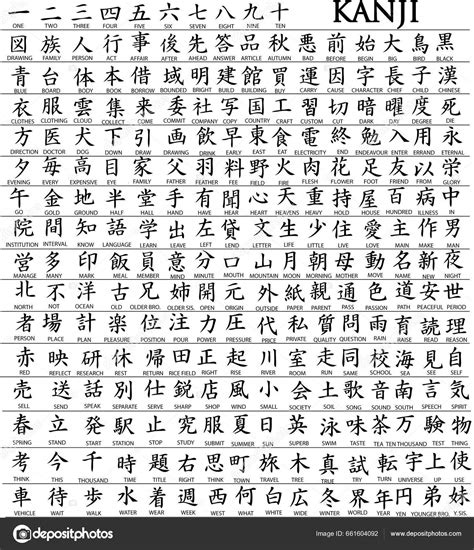 一 二 三 四 五 六 七 八 九 十 KANJI
ONE TWO THREE FOUR FIVE SIX SEVEN EIGHT NINE TEN
図 族 人 行 事 後 先 答 品 秋 悪 前 始 大 鳥 黒
DRAWING FAMILY PERSON ACT AFFAIR AFTER AHEAD ANSWER ARTICLE AUTUMN BAD BEFORE BEGIN BIG BIRD BLACK
青 台 体 本 借 域 明 建 館 買 運 因 字 長 子 漢
BLUE BOARD BODY BOOK BORROW BOUNDED BRIGHT BUILD BUILDING BUY CARRY CAUSE CHARACTER CHIEF CHILD CHINESE
衣 服 雲 集 来 委 社 写 国 工 習 切 暗 曜 度 死
CLOTHES CLOTHING CLOUD COLLECT COME COMMIT COMPANY COPY COUNTRY CRAFT CUT DARK DAY DEGREE DIE
方 医 犬 下 引 画 飲 早 東 食 電 終 勉 入 用 永
DIRECTION DOCTOR DOG DOWN DRAG DRAWING DRINK EARLY EAST EAT END ENDEAVOUR ENTER ERRAND ETERNAL
夕 毎 高 目 家 父 羽 料 野 火 肉 花 足 友 以
EVENING EVERY EXPENSIVE EYE FAMILY FATHER FEATHER FEE FIELD FIRE FLESH FLOWER FOOT FRIEND FROM
午 金 地 半 堂 手 有 開 心 天 重 持 屋 百 病 中
GO GOLD GROUND HALF HALL HAND HAVE HEAR HEART HEAVENS HEAVY HOLD HOUSE HUNDRED ILLNESS IN
院 間 知 語 学 出 左 貸 文 生 少 住 愛 主 作 男
INSTITUTION INTERVAL KNOW LANGUAGE LEARN LEAVE LEFT LEND LIFE LITTLE LIVE LOVE MAIN MAKE MAN
営 多 印 飯 員 意 分 口 山 朝 母 動 名 新 夜
MANAGE MANY MARK MEAL MEMBER MIND MINUTE MOUTH MOUNTAIN MORNING MOTHER MOVE NAME NEW NIGHT
北 不 洋 古 兄 姉 開 元 外 紙 親 通 道 安 世
NORTH NOT OCEAN OLD OLDER BRO. OLDER SIS. OPEN ORIGIN OUTSIDE PAPER PARENT PASS PATH PEACEFUL PERIOD
者 場 計 楽 位 注 力 圧 代 私 質 問 雨 育 読 理
PERSON PLACE PLAN PLEASURE POSITION POUR POWER PRESSURE PRIVATE QUALITY QUESTION RAIN RAISE READ REASON
赤 映 研 休 帰 田 正 起 川 走 同 校 海 見 自
RED REFLECT RESEARCH REST RETURN RICE FIELD RIGHT RISE RIVER ROOM RUN SAME SCHOOL SEA SEE SELF
売 送 話 別 仕 鋭 店 風 小 会 土 歌 音 南 言 気
SELL SEND SPEAK SEPARATE SERVE SHARP SHOP SMALL SOCIETY SOIL SONG SOUND SOUTH SPEECH SPIRIT
春 立 発 駅 止 究 服 夏 日 英 泳 味 茶 万 験 物
SPRING STAND START STATION STOP STUDY SUMMER SUN SUPERB SWIM TASTE TEA TEN THOUSAND TEST THING
考 今 千 時 題 右 思 町 旅 木 真 試
THINK THIS THOUSAND TIME TITLE TOWN TRAVEL TREE TRUE TRY TWO
車 待 水 週 着 西 何 白 広 冬 世 界 年 円 弟 妹
VEHICLE WAIT WALK WATER WEEK WEAR WEST WHAT WHITE WIDE WINTER WORLD YEAR YEN
depositphotos
Image ID: 661604092
www.depositphotos.com